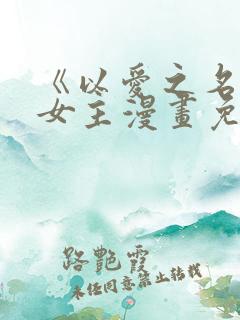 《以爱之名
女王漫畫免
路艷霞
未经同意禁止转载